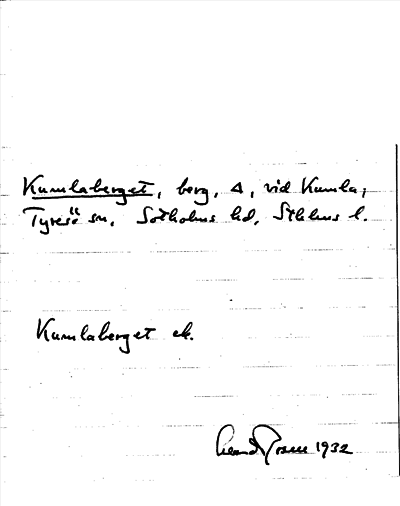 Kumlaberget, berg, Δ, vid Kumla,
Tyresö sn, Sotholms hd, Sthlms l.
Kumlaberget ek.
1932